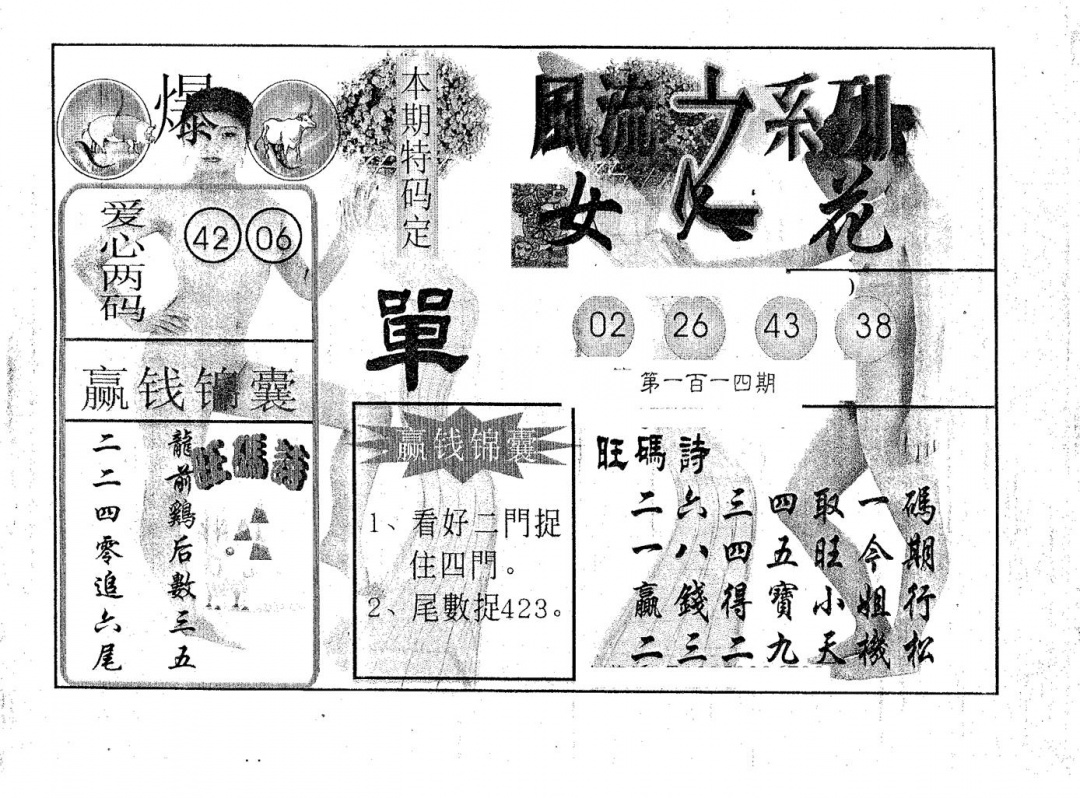 爆
爱心两码
42 06
赢钱锦囊
旺碼詩
龍前鷄后數三五
二二四零追六尾
本期特码定
單
赢钱锦囊
1、看好二門捉
住四門。
2、尾數捉423。
風流之系列
女人花
)
02 26 43 38
第一百一四期
旺碼詩
二六三四取一碼
一八四五旺今期
赢錢得寶小姐行
二三二九天機松